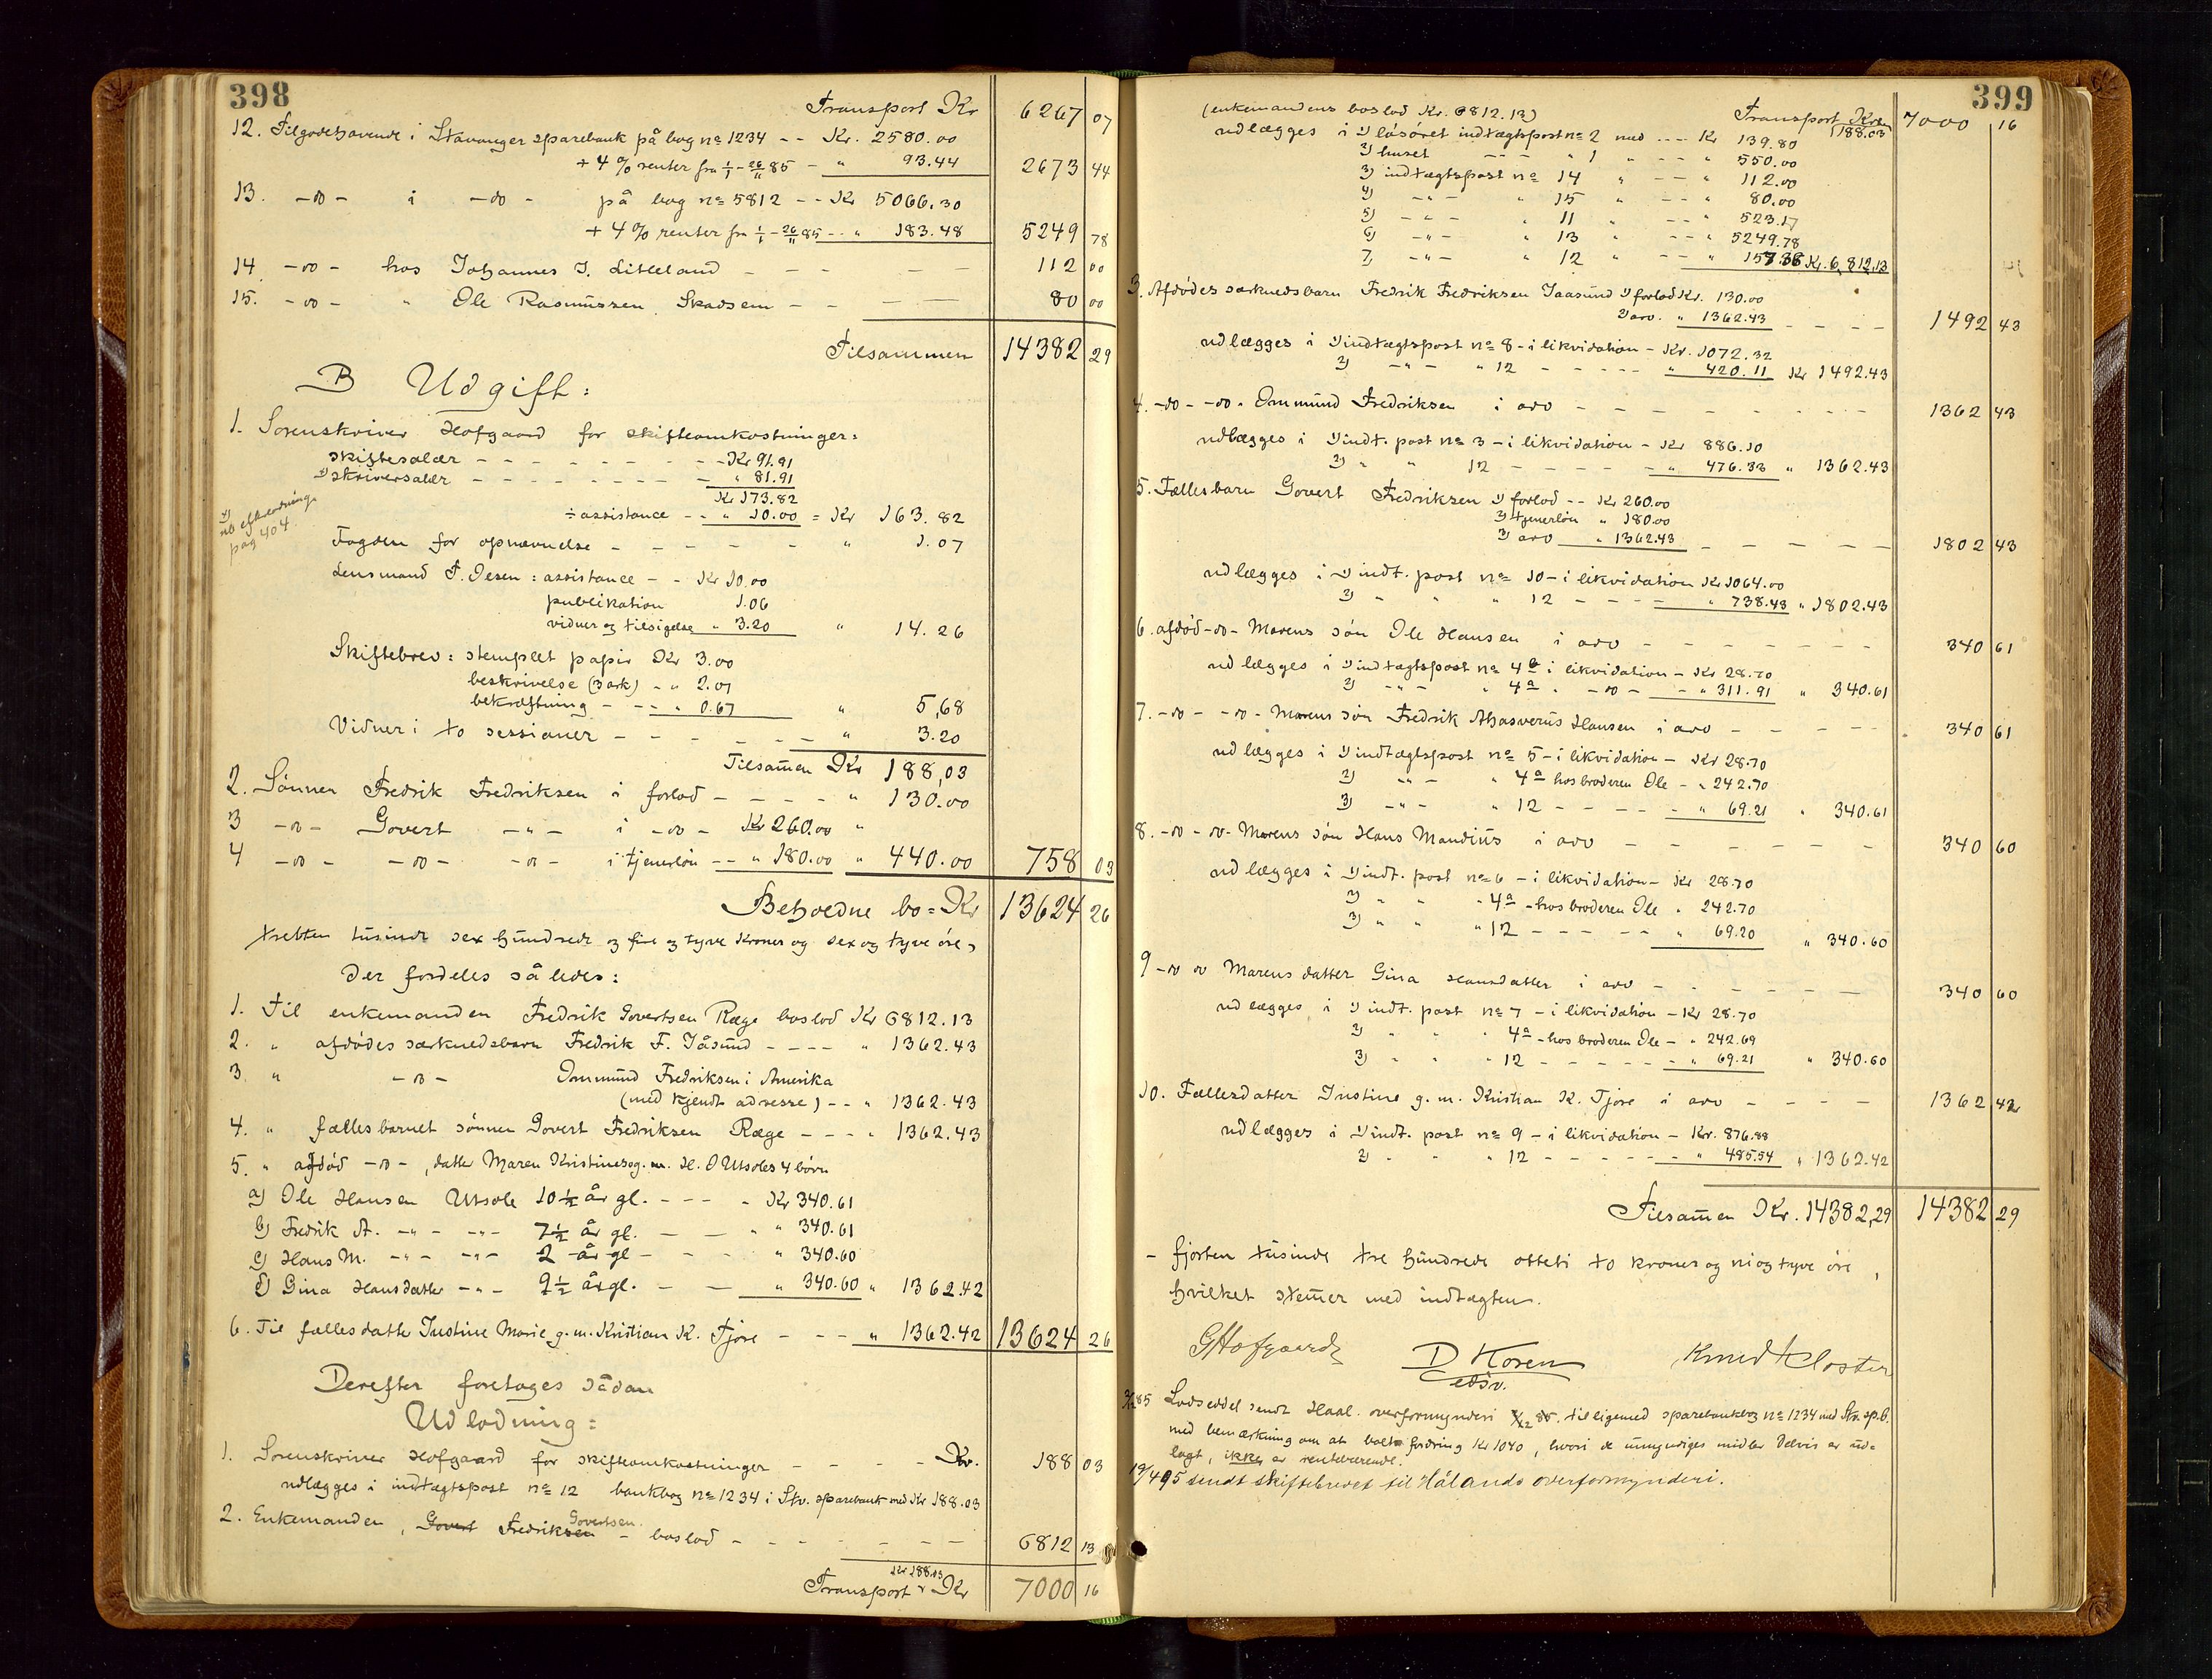 398
Transport Kr 6267 07
12. Tilgodehavende i Stavanger sparebank på bog no 1234 - - Kr. 2580.00
+ 4 % renter fra 1/1 - 26/11 85 - " 93.44 2673 44
13. -do- i -do- på bog no 5812 - - Kr 5066.30
+ 4 % renter fra 1/1 - 26/11 85 - - " 183.48 5249 78
14 -do- hos Johannes J. Litleland - - - - - 112 00
15. -do- " Ole Rasmussen Skadsem - - - 80 00
Tilsammen 14382 29
B Udgift:
1. Sorenskriver Hofgaard for skifteomkostninger:
skiftesalær - - - - - - - - Kr 91.91
1) skriversalær - - - - - - - - " 81.91
Kr 173.82
1) nb
pag 404.
÷ assistance - - " 10.00 = Kr 163.82
Fogden for opnævnelse - - - - - - " 1.07
Lensmand T. Oesen: assistance - - Kr 10.00
publikation 1.06
vidner og tilsigelse " 3.20 " 14.26
Skiftebrev: stemplet papir Kr 3.00
beskrivelse (3 ark) - " 2.01
bekræftning - - - " 0.67 " 5,68
Vidner i to sessioner - - - - - - " 3.20
Tilsamen Kr 188,03
2. Sønnen Fredrik Fredriksen i forlod - - - - " 130.00
3 -do- Govert -"- i -do- Kr 260.00 "
4 -do- -do- -do- i tjenerløn - - " 180.00 " 440.00 758 03
Beholdne bo = Kr 13624 26
tretten tusinde sex hundrede og fire og tyve kroner og sex og tyve øre,
Der fordeles således:
1. Til enkemanden Fredrik Govertsen Ræge boslod Kr 6812.13
2. " afdødes særkuedsbarn Fredrik F. Jåsund - - - - " 1362.43
3. " -do- Ommund Fredriksen i Amerika
(med kjendt adresse) - - " 1362.43
4. " fællesbarnet sønnen Govert Fredriksen Ræge - - - " 1362.43
5. " afdød -do-, datter Maren Kristines g. m. H. O Utsoles 4 børn
a) Ole Hansen Utsole 10 1/2 år gl. - - - - Kr 340.61
b) Fredrik A. -"- -"- 7 1/2 år gl. - - " 340.61
c) Hans M. -"- -"- 2 år gl - - " 340.60
d) Gina Hansdatter -"- 9 1/2 år gl. - - " 340.60 " 1362.42
6. Til fællesdatter Justine Marie g. m. Kristian K. Tjore - - - " 1362.42 13624 26
Derefter foretages sådan
Udlodning:
1. Sorenskriver Hofgaard for skifteomkostninger - - - - - Kr. 188 03
udlægges i indtægtspost no 12 bankbog no 1234 i Stv. sparebank med Kr 188.03
2. Enkemanden, Govert Fredriksen Govertsen - boslod - - - - - - - 6812 13
Kr 188.03
Transport Kr 7000 16
399
(enkemandens boslod Kr. 6812.13) Transport Kr 7000 16
(188.03
udlægges i 1) løsøret indtægtspost no 2 med - - - Kr 139.80
2) huset - - - - " 1 " - - " 550.00
3) indtægtspost no 14 " - - " 112.00
4) -"- " 15 " - - " 80.00
5) - - - " 11 " - - " 523.17
6) -"- " 13 " - - " 5249.78
7) -"- " 12 " - - " 157.38 Kr. 6,812,13
3. Afdødes særkuedsbarn Fredrik Fredriksen Jaasund 1) forlod Kr. 130.00
2) arv. " 1362.43 - - - - 1492 43
udlægges i 1) indtægtspost no 8 - i likvidation - Kr. 1072.32
2) -"- " 12 - - - - - " 420.11 Kr 1492.43
4. -do- -do- Ommund Fredriksen i arv - - - - - - - - - 1362 43
udlægges i 1) indt. post no 3 - i likvidation - Kr 886.10
2) " " 12 - - - - - - " 476.33 " 1362.43
5. Fællesbarn Govert Fredriksen 1) forlod - - Kr 260.00
2) tjenerløn " 180.00
3) arv " 1362.43 - - - - - 1802 43
udlægges i 1) indt. post no 10 - i likvidation Kr 1064.00
2) " " " 12 - - - - " 738.43 " 1802.43
6. afdød -do- Marens søn Ole Hansen i arv - - - - - - - 340 61
udlægges i 1) indtægtspost no 4b i likvidation - Kr 28.70
2) -"- " 4a . -do- - - " 311.91 " 340.61
7. -do- -do- Marens søn Fredrik Ahasverus Hansen i arv - - - - - 340 61
udlægges i 1) indtægtspost no 5 - i likvidation - Kr 28.70
2) -"- " 4a hos broderen Ole - " 242.70
3) -"- " 12 - - - - - " 69.21 " 340.61
8. -do- do- Marens søn Hans Mandius i arv - - - - - - - 340 60
udlægges i 1) indt. post no 6 - i likvidation - Kr 28.70
2) " " " 4a - hos broderen Ole " 242.70
3) " " " 12 - - - - - " 69.20 " 340.60
9 -do do Marens datter Gina Hansdatter i arv - - - - - - 340 60
udlægges i 1) indt. post no 7 - i likvidation - Kr 28.70
2) " " " 4a - hos broderen Ole - " 242.69
3) " " " 12 - - - - - - " 69.21 " 340.60
10. Fællesdatter Justine g. m. Kristian K. Tjore i arv - - - - 1362 42
udlægges i 1) indt. post no 9 - i likvidation - Kr. 876.88
2) " " " 12 - - - - - - " 485.54 " 1362.42
Tilsamen Kr. 14382,29 14382 29
- fjorten tusinde tre hundrede otteti to kroner og ni og tyve øre,
hvilket stemer med indtægten.
G Hofgaard D Koren Knud Kloster
edsv.
3/12 85 Lodseddel sendt Haal. overformynderi 3/12 85. tilligemed sparebankbog no 1234 med Stv. sp.b.
med bemærkning om at boets fordring Kr 1040, hvori de umyndiges midler delvis er ud-
lagt, ikke er rentebærende.
19/4 95 sendt skiftebrevet til Hålands overformynderi.